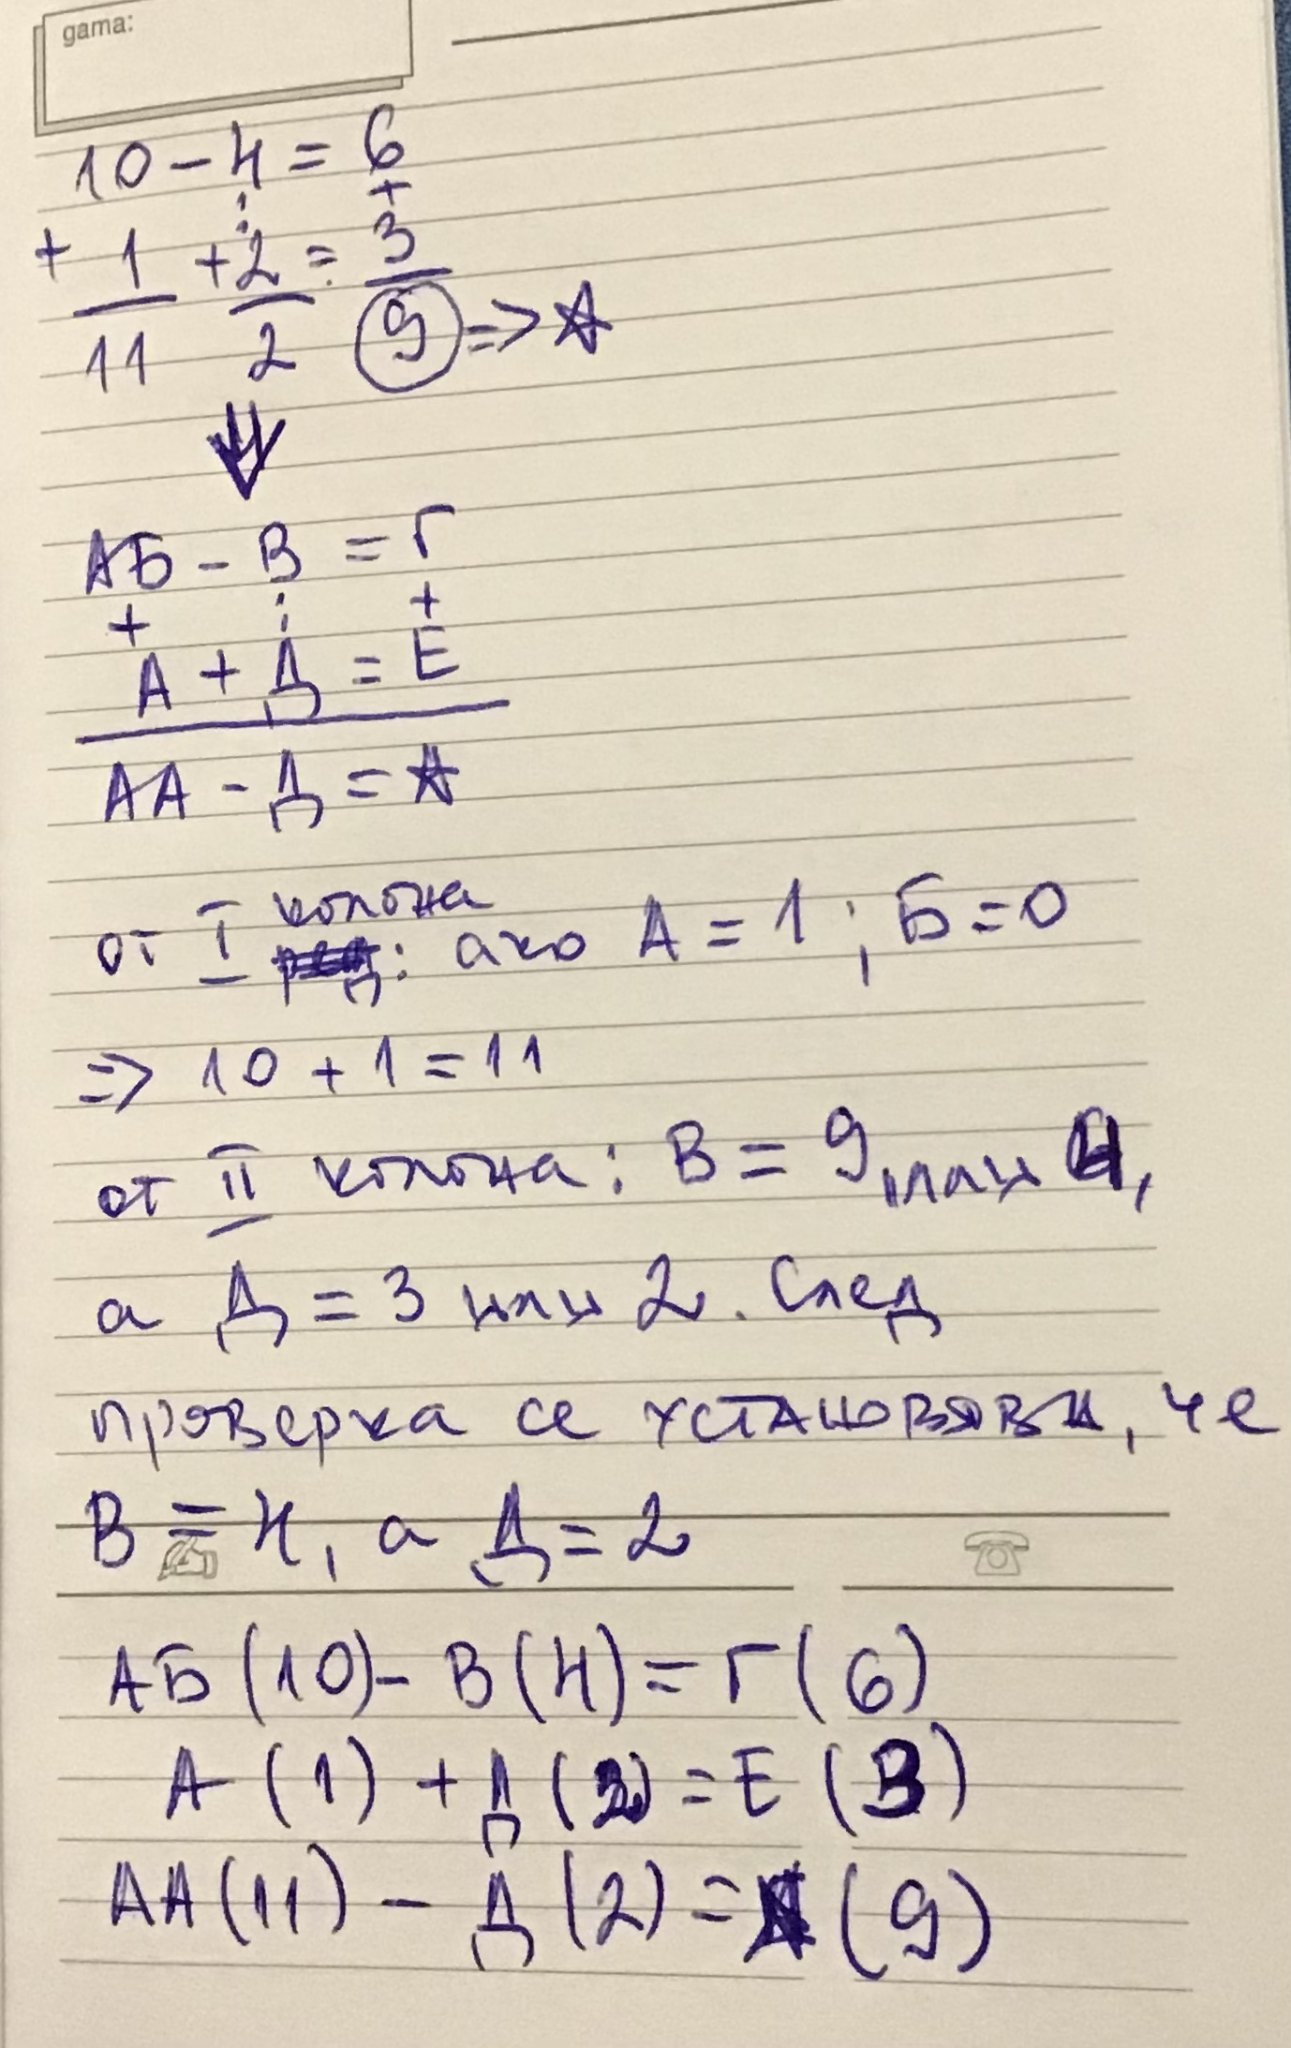 дата:
10 - 4 = 6
: +
+ 1 + 2 = 3
11 2 9 => ☆
⇓
АБ - В = Г
+ : +
А + Д = Е
АА - Д = ☆
от I колона: ако А = 1; Б = 0
=> 10 + 1 = 11
от II колона: В = 9 или 4,
а Д = 3 или 2. След
проверка се установява, че
В = 4, а Д = 2
АБ (10) - В (4) = Г (6)
А (1) + Д (2) = Е (3)
АА (11) - Д (2) = ☆ (9)